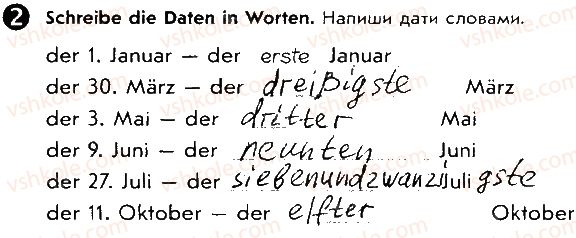 2 Schreibe die Daten in Worten. Напиши дати словами.
der 1. Januar – der erste Januar
der 30. März – der dreißigste März
der 3. Mai – der dritter Mai
der 9. Juni – der neunten Juni
der 27. Juli – der siebenundzwanzigste Juli
der 11. Oktober – der elfter Oktober